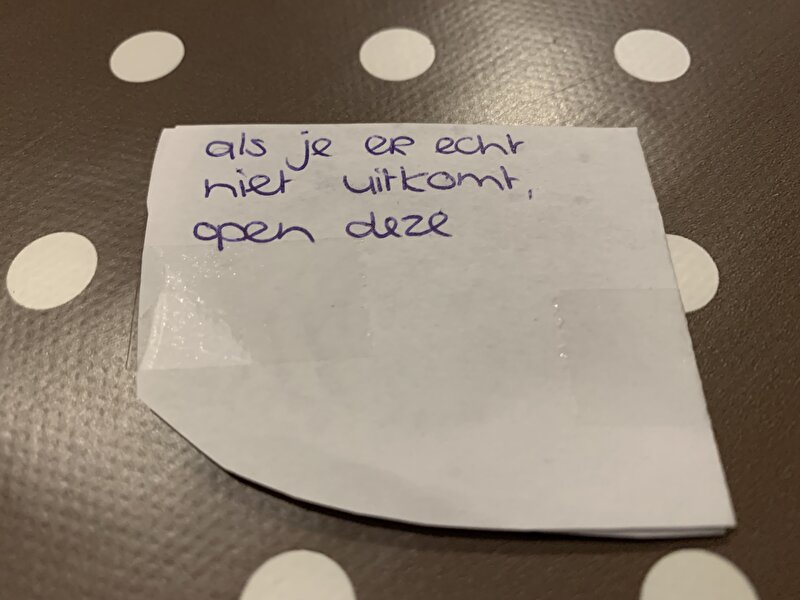 als je er echt
niet uitkomt,
open deze